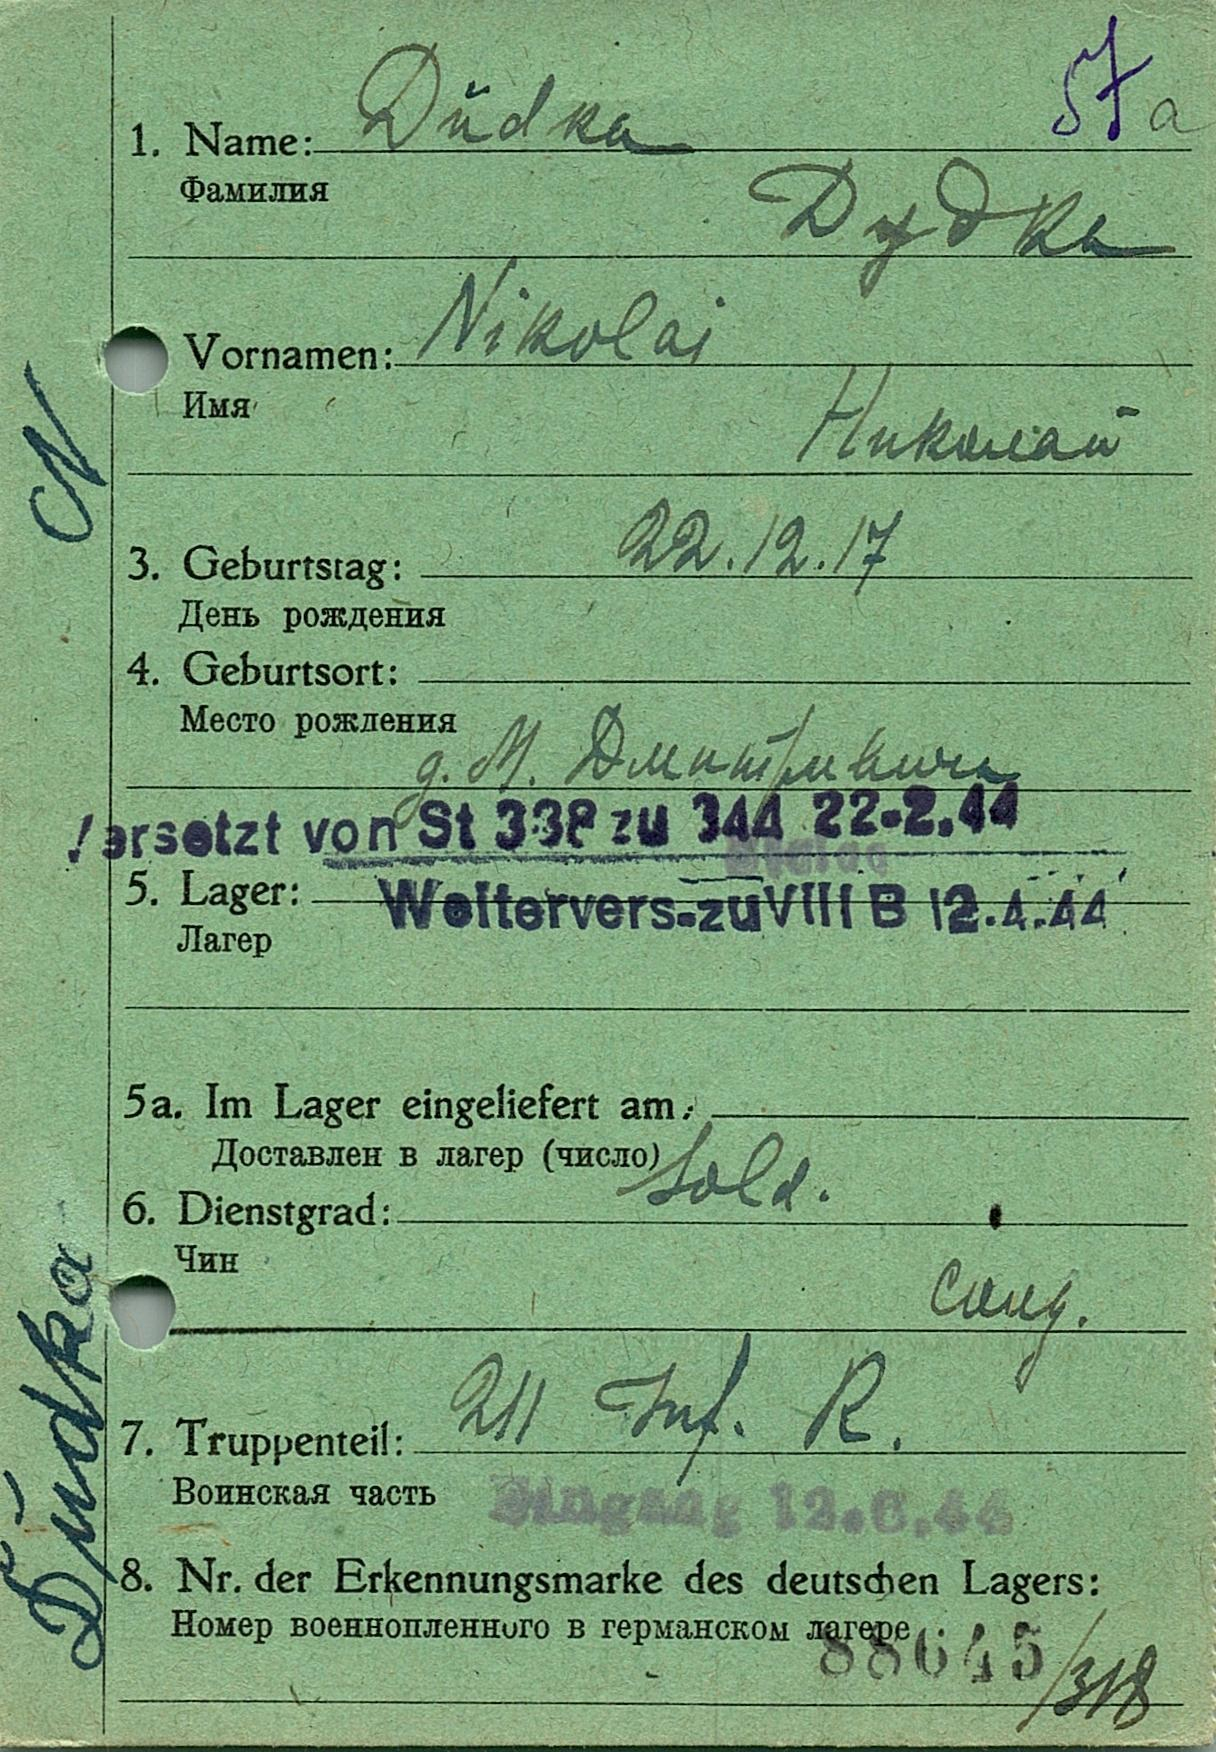 57 a
1. Name: Dudka
Фамилия
Дудка
Vornamen: Nikolai
Имя
Николай
N
3. Geburtstag: 22.12.17
День рождения
4. Geburtsort:
Место рождения
д. М.
ersetzt von St 338 zu 344 22.2.44
5. Lager: Weitervers.zu VIII B 12.4.44
Лагер
5a. Im Lager eingeliefert am:
Доставлен в лагер (число)
6. Dienstgrad: Sold.
Чин
солд.
7. Truppenteil: 211 Inf. R.
Воинская часть
Eingang 12.6.44
8. Nr. der Erkennungsmarke des deutschen Lagers:
Номер военнопленного в германском лагере
88645/318
Dudka